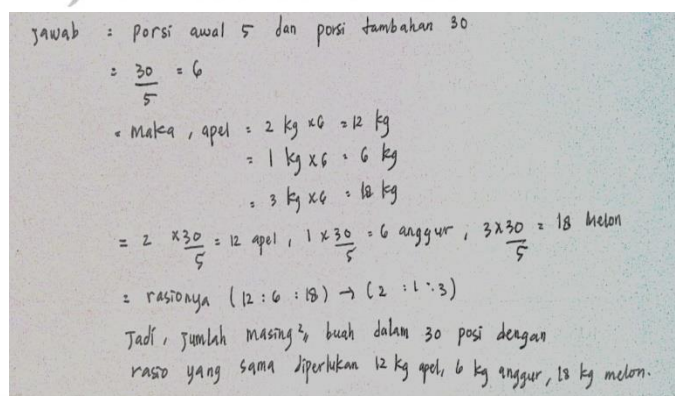 Jawab : porsi awal 5 dan porsi tambahan 30
= 30/5 = 6
= Maka, apel = 2 kg x6 = 12 kg
= 1 kg x6 = 6 kg
= 3 kg x6 = 18 kg
= 2 x30/5 = 12 apel, 1 x 30/5 = 6 anggur, 3x30/5 = 18 Melon
= rasionya (12 : 6 : 18) → (2 : 1 : 3)
Jadi, Jumlah masing², buah dalam 30 posi dengan
rasio yang sama diperlukan 12 kg apel, 6 kg anggur, 18 kg melon.